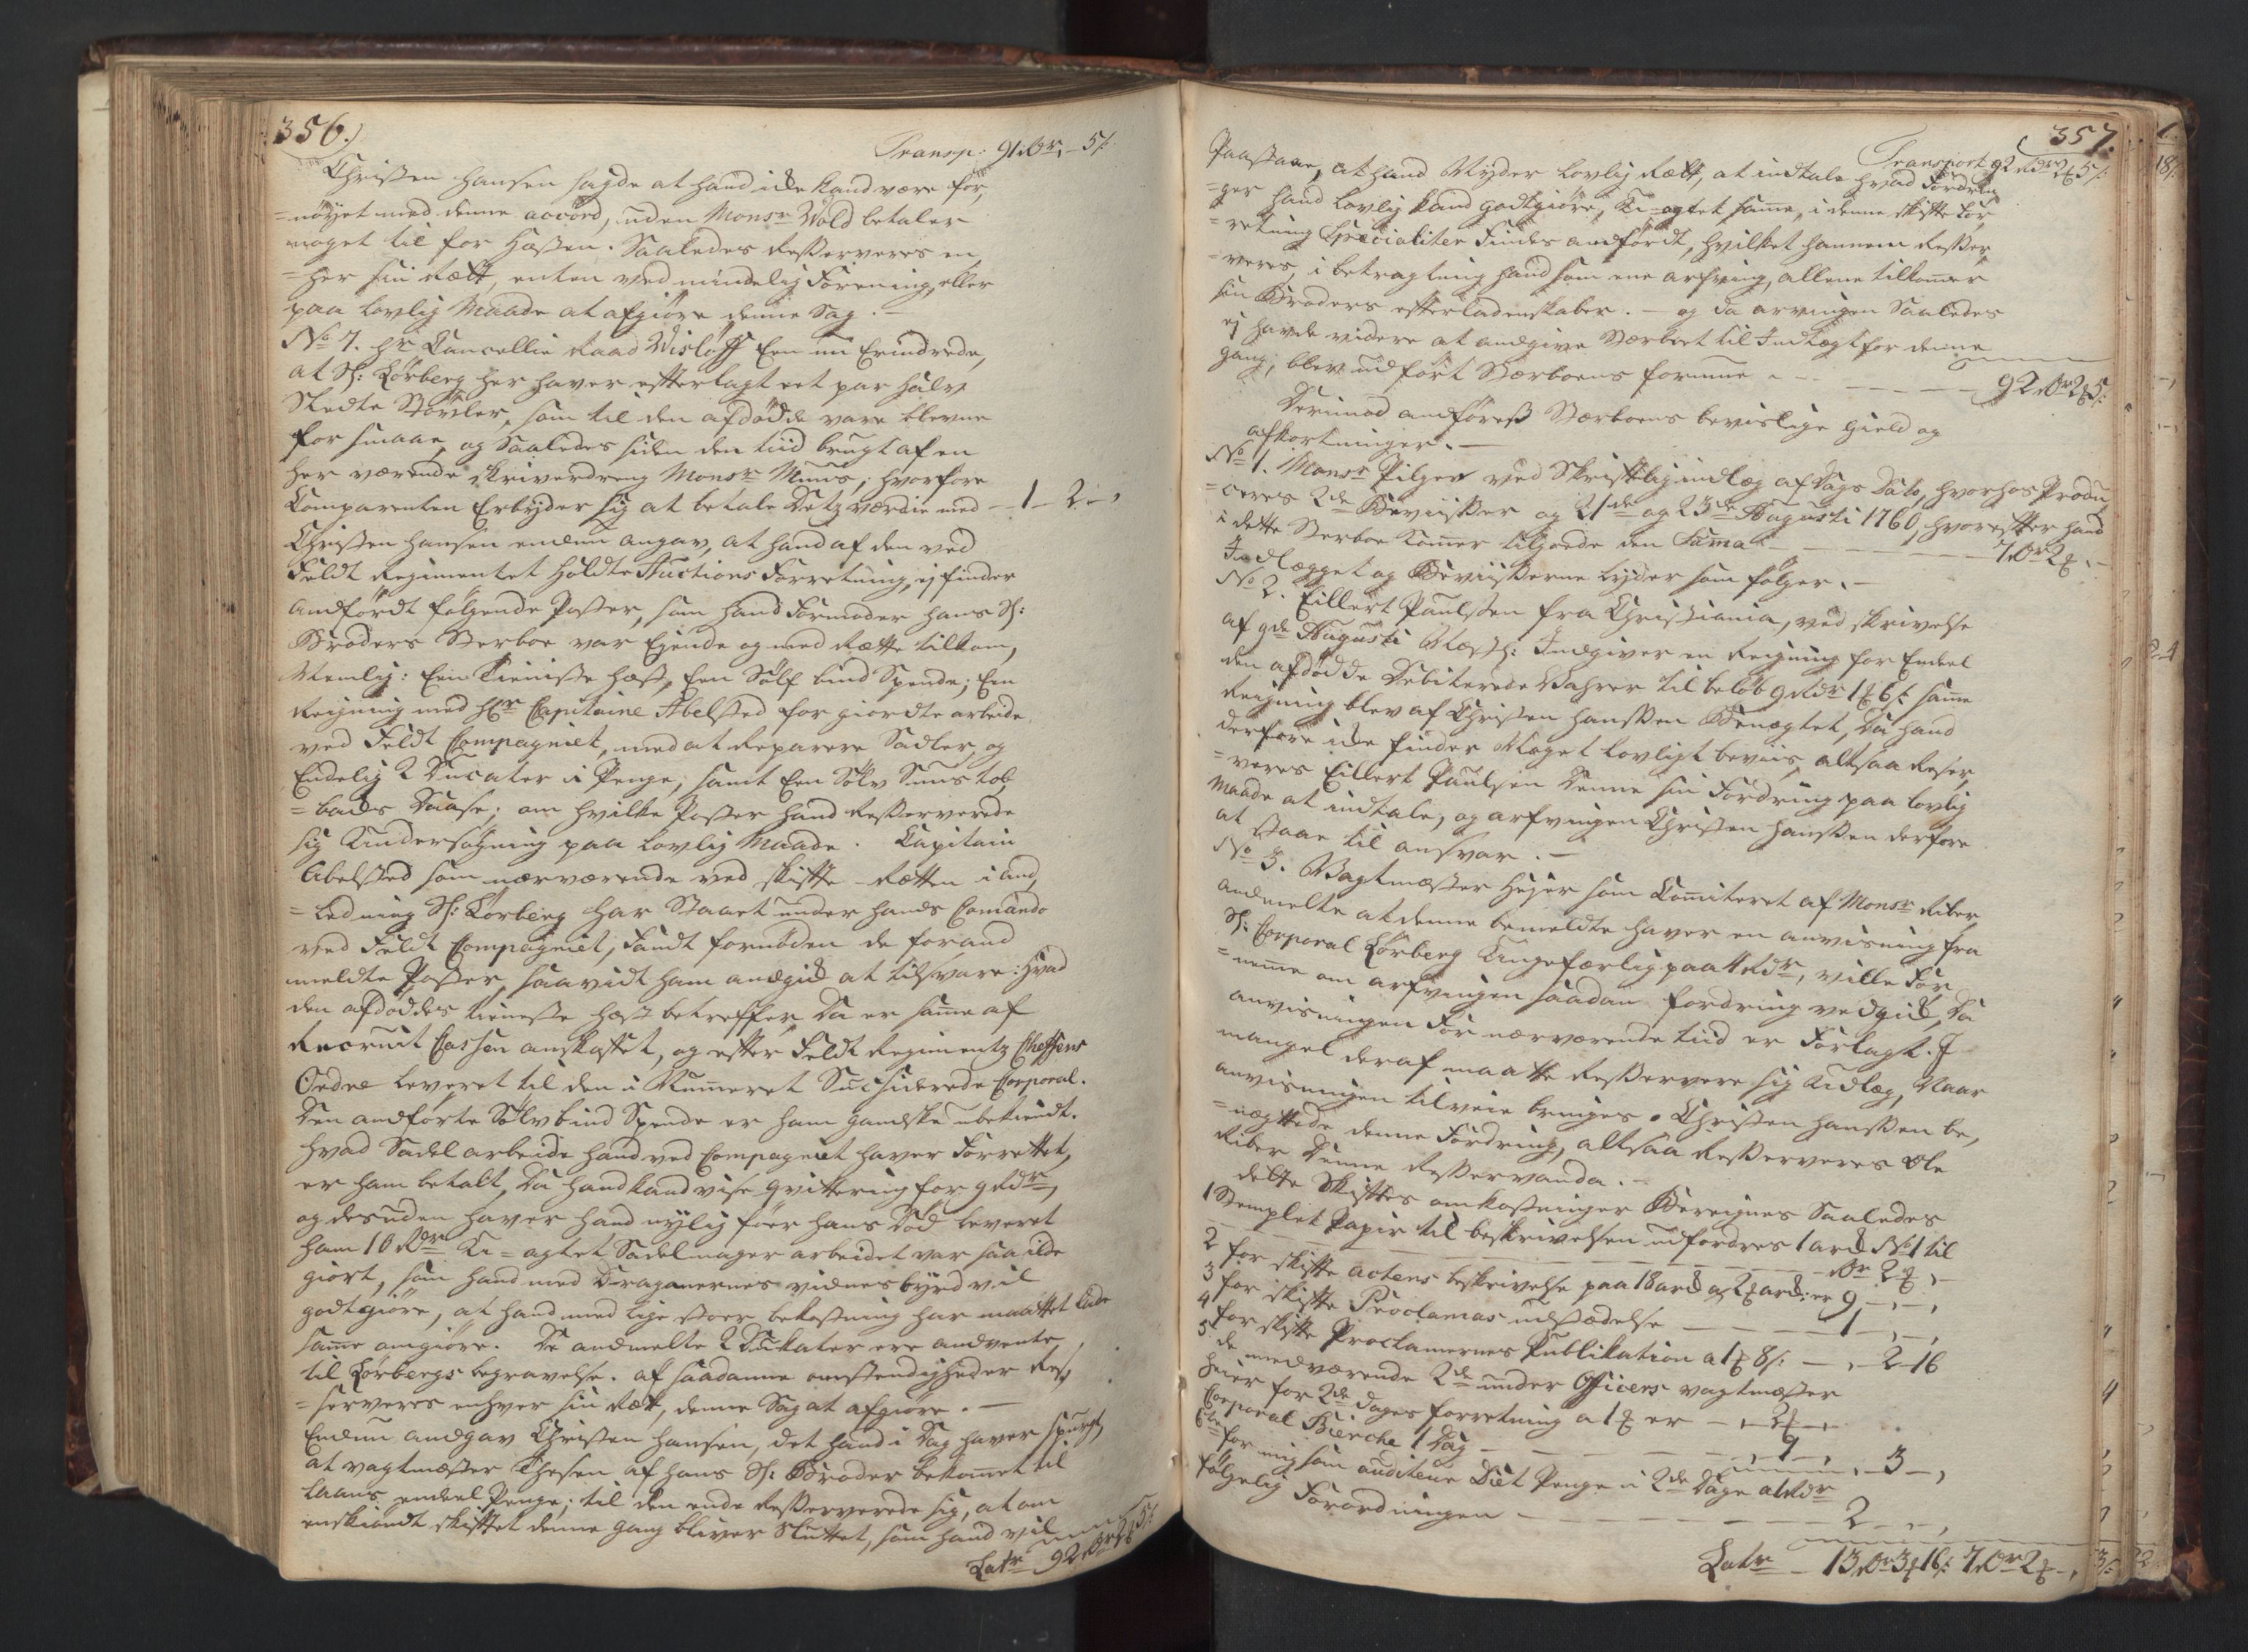 356.)
Transp: 91 rdr, - 5 s:
Christen Hansen sagde at hand icke kand være for,
=nöyet med denne accord, uden Monsr Wold betaler
noget til for Hæsten. Saaledes Resserveres en,
=hver sin Rætt, enten ved mindelig Forening, eller
paa lovlig Maade at afgiöre denne Sag. -
No 7. Hr Cancellie Raad Wislöff Een nu Erindrede,
at Sl: Lörberg her haver efterlagt eet par halv
Sledte Stövler, som til den afdödde vare blevne
for smaae, og Saaledes siden den tiid brugt af en
her værende skriverdreng Monsr Muus, hvorfore
Comparenten Erbyder sig at betale Detz værdie med - 1 - 2 - ,
Christen Hansen endnu angav, at hand af den ved
Feldt Regimentet holdte Auctions Forretning, ej finder
andfördt fölgende Poster, som hand Formoder hans Sl:
Broders Sterboe var Ejende og med Rætte tilkom,
Nemlig: Een Tieniste Hæst, Een Sölf bind Spende; Een
Reigning med Hr Capitaine Abelsted for giordte arbeide
ved Feldt Compagniet, med at Reparere Sadler, og
Endelig 2 Ducater i Penge, samt Een Sölv Snus tob,
=backs Daase; om hvilke Poster hand Resserverede
sig Undersögning paa lovlig Maade. Capitain
Abelsted som nærværende ved skifte-Rætten i and,
=ledning Sl: Lörberg har Staaet under hands Comando
ved Feldt Compagniet, fandt fornöden de forand
meldte Poster, saavidt ham anegik at tilsvare: hvad
den afdöddes tieneste Hæst betreffer, Da er samme af
Recruut Cassen anskaffet, og efter Feldt Regimentz Cheffens
Ordre leveret til den i Nummeret Succiderede Corporal.
Den andförte Sölvbind Spende er ham gandske ubekiendt.
Hvad Sadel arbeide hand ved Compagniet haver Forrettet,
er ham betalt, Da hand kand vise qvittering for 9 Rdr,
og desuden haver hand nylig föer hans Död leveret
ham 10 Rdr U=agtet Sadelmager arbeidet var saa ilde
giort, som hand med Dragonernes vidnesbyrd vil
godtgiöre, at hand med lige stoer bekostning har maattet lade
samme omgiöre. De andmelte 2 Ducater ere andvente
til Lörbergs begravelse. af saadanne omstendigheder Res,
=serveres enhver sin Rætt, denne Sag at afgiöre. -
Endnu andgav Christen Hansen, det hand i Dag haver spurgt,
at vagtmæster Thesen af hans Sl: Broder bekommet til
laans endeel Penge; til den ende Resserverede sig, at om
enskiöndt skiftet denne gang bliver Sluttet, som hand vil
Latr 92 rdr 2 5 s:
357.
Transport 92 rdr 2 5 s:
Paastaae, at hand Nyder lovlig Rætt, at indtale hvad Fordrin,
=ger hand lovlig kand godtgiöre, U-agtet samme, i denne skifte for,
=retning Specialiter findes andfördt, hvilket hannem Resser,
=veres, i betragtning hand som ene arfving, allene tilkommer
sin Broders efterladenskaber. - og da arvingen Saaledes
ej havde videre at andgive Sterboet til Indtægt for denne
gang, blev udfört Sterboens formue - - - 92 rdr 2 5 s:
Derimod andföres Sterboens bevislige gield og
afkortninger. -
No 1. Monsr Pilger ved Skriftlig indlæg af Dags Dato, hvorhos Produ,
=ceres 2de Beviisser og 21de og 23de Augusti 1760, hvorefter hand
i dette Sterboe kommer tilgode den Suma - - - 7 rdr 2 . -
Indlægget og Beviisserne lyder som fölger. -
No 2. Eillert Paulssen fra Christiania, ved skrivelse
af 9de Augusti Næstl: Indgiver en Reigning for Endeel
den afdödde Debiterede Vahrer til belöb 9 rdr 1 6 s: samme
Reigning blev af Christen Hanssen Benægtet, Da hand
derfore icke finder Noget lovligt beviis, altsaa Reser,
=veres Eillert Paulsen Denne sin Fordring paa lovlig
Maade at indtale, og arfvingen Christen Hanssen derfore
at staae til ansvar. -
No 3. Vagtmæster Heyer som Committeret af Monsr Riber
andmelte at denne bemeldte haver en anvisning fra
Sl: Corporal Lörberg Ungefærlig paa 4 rdr, ville For,
=nemme om arfvingen saadan fordring vedgik, Da
anvisningen For nærværende tiid er Forlagt. I
mangel deraf maatte Resservere sig Udlæg, Naar
anvisningen tilveie bringes. Christen Hanssen be,
=nægtede denne Fordring, altsaa Resserveres Ole
Riber Denne Resservanda. -
dette Skiftes omkostninger Bereignes Saaledes
1 Stemplet Papir til beskrivelsen udfordres 1 ark No 1 til
- - - rdr 2 , -
2 for skifte Actens beskrivelse paa 18 ark a 2 ark: er 9 , - , - ,
3 for skifte Proclamas udstædelse - - - 1 - , - ,
4 for skifte Proclamernes Publikation a 1 8 s: - , - 2 - 16
5 de medværende 2de under Officers vagtmæster
Heier for 2de dages forretning a 1 er - , - 2 - ,
Corporal Bierche 1 Dag - - - , 1 - , - 3 - ,
6te for mig som auditeur Diet Penge i 2de Dage a 1 Rdr
fölgelig Forordningen - - - 2 - - ,
Latr - 13 rdr 3 16 s: 7 rdr 2 - ,